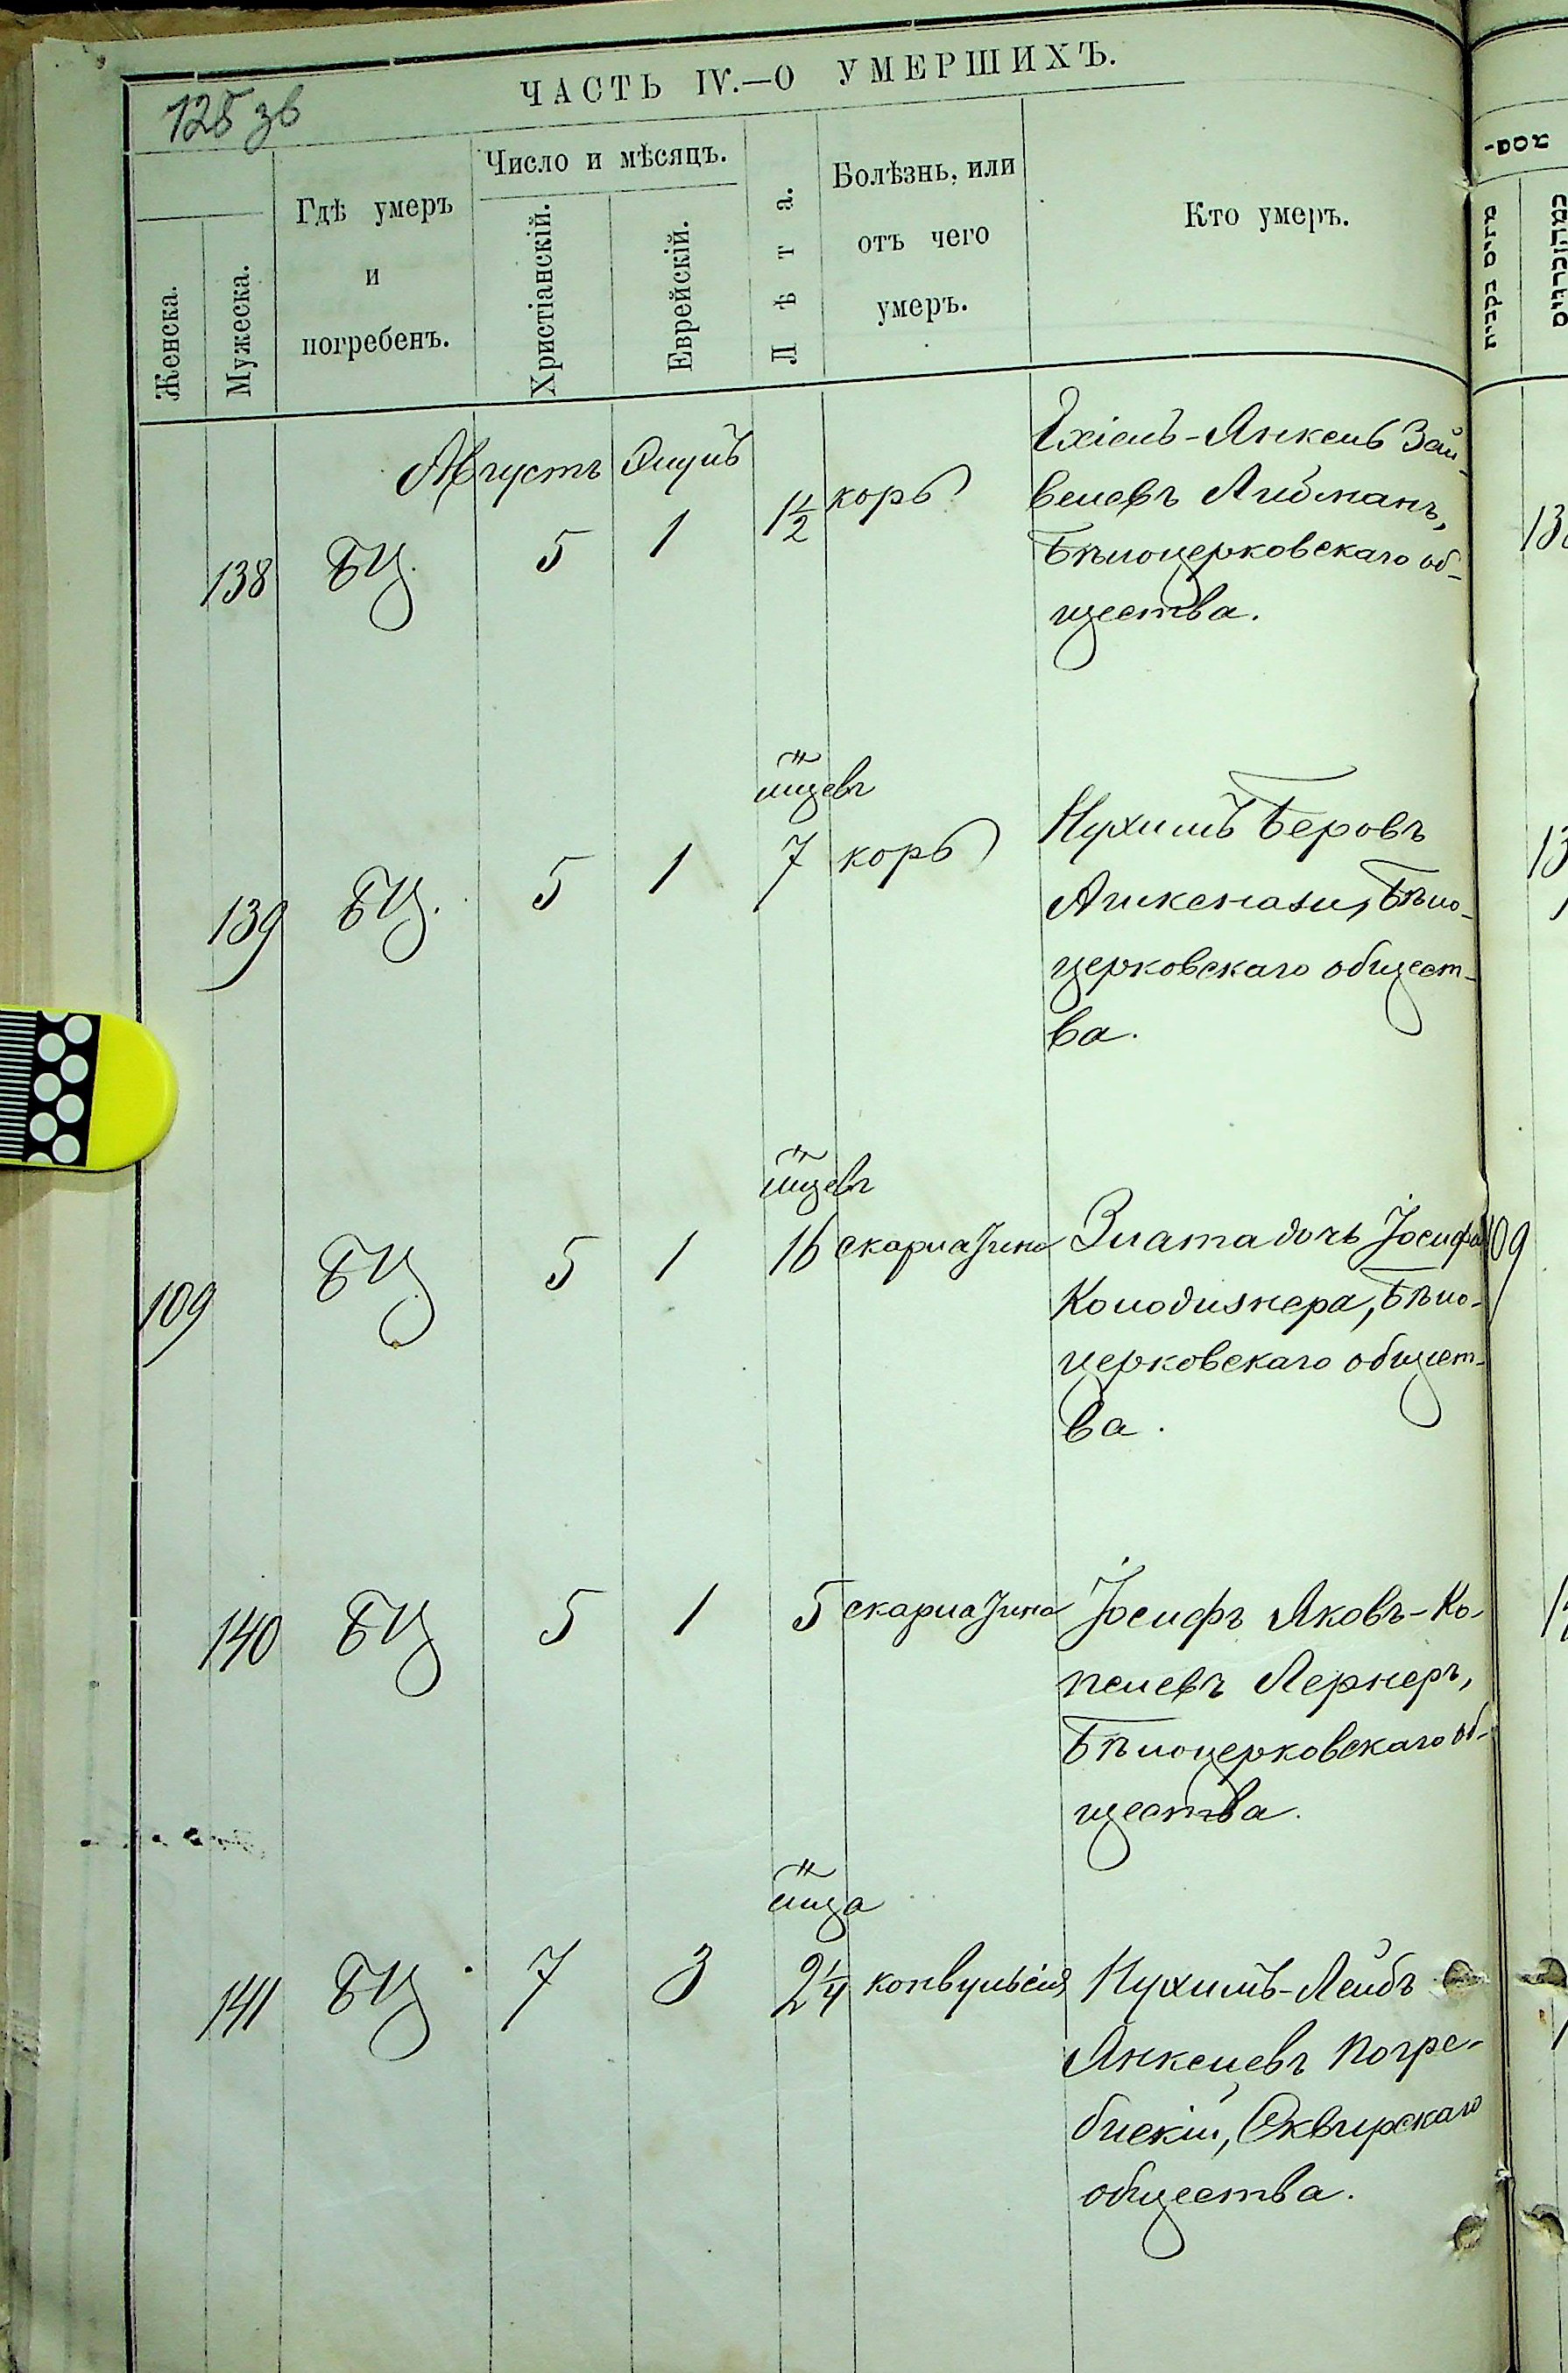 125 зв
ЧАСТЬ IV.—О УМЕРШИХЪ.
Женска.
Мужеска.
Гдѣ умеръ
и
погребенъ.
Число и мѣсяцъ.
Христіанскій.
Еврейскій.
Лѣта.
Болѣзнь, или
отъ чего
умеръ.
Кто умеръ.
Августъ Элулъ
138 БЦ. 5 1 1½ корь
Ехіель-Янкель Зай-
велевъ Либманъ,
Бѣлоцерковскаго об-
щества.
мцевъ
139 БЦ. 5 1 7 корь
Нухимъ Беровъ
Ашкенази, Бѣло-
церковскаго общест-
ва.
мцевъ
109 БЦ 5 1 16 скарлатина
Злата дочь Іосифа
Колодизнера, Бѣло-
церковскаго общест-
ва.
109
140 БЦ 5 1 5 скарлатина
Іосифъ Яковъ-Ко-
пелевъ Лернеръ,
Бѣлоцерковскаго об-
щества.
мца
141 БЦ 7 3 2¼ конвульсія
Нухимъ-Лейбъ
Янкелевъ Погре-
бискій, Сквирскаго
общества.